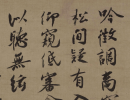 吟徵調商
松間疑有
仰窺低審
以聽無絃